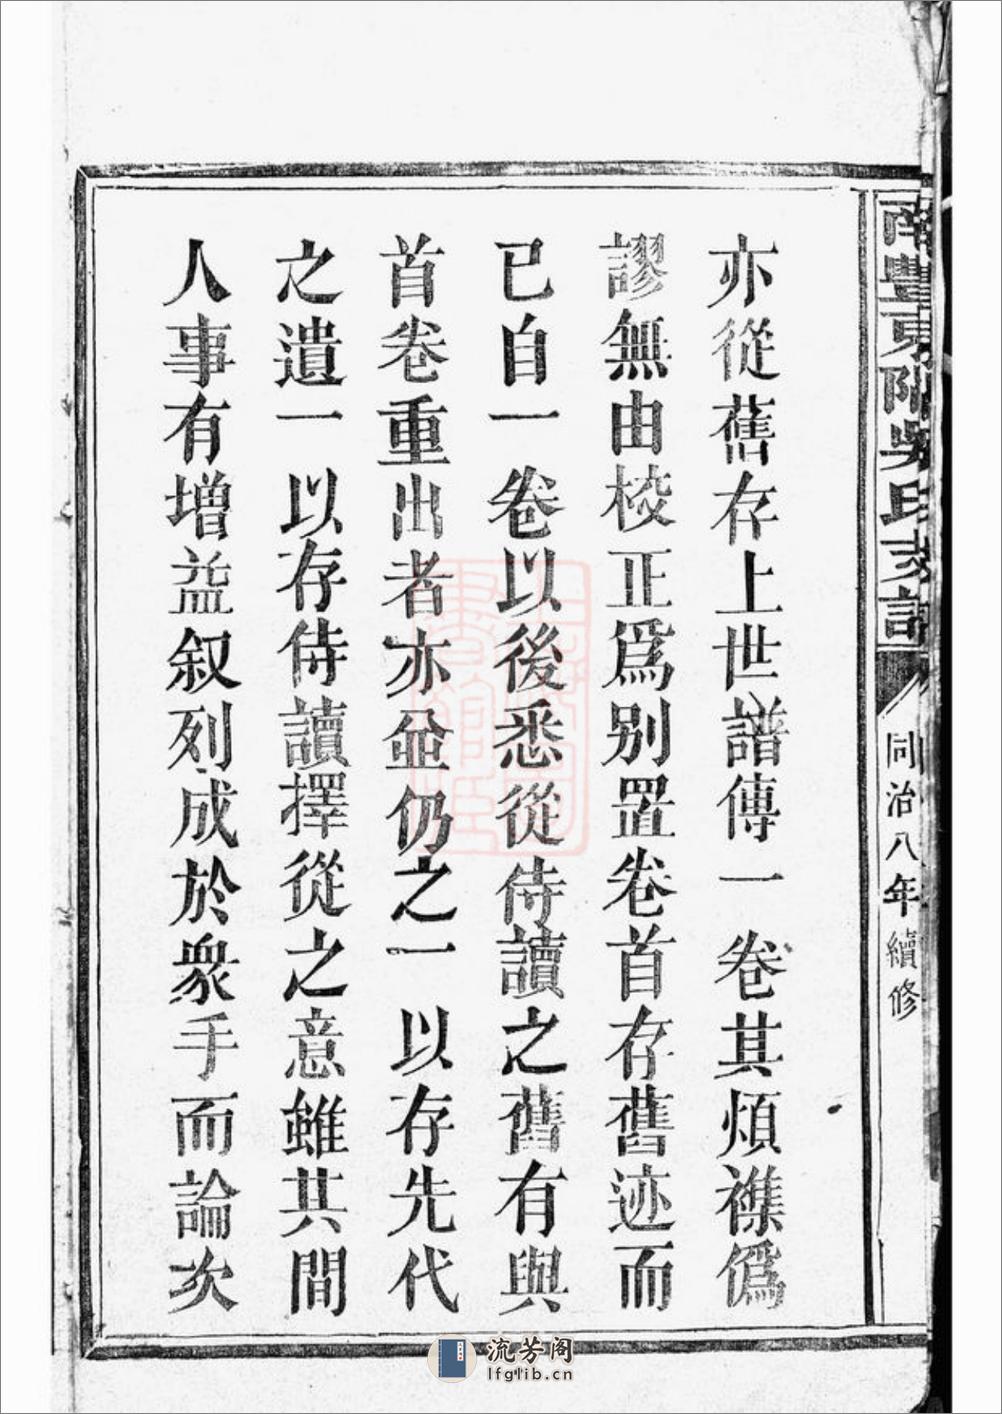 南豐東隅吳氏支譜
同治八年續修
亦從舊存上世譜傳一卷其煩襍僞
謬無由校正爲別置卷首存舊迹而
已自一卷以後悉從侍讀之舊有與
首卷重出者亦並仍之一以存先代
之遺一以存侍讀擇從之意雖其間
人事有增益叙列成於衆手而論次
流芳阁
lfglib.cn